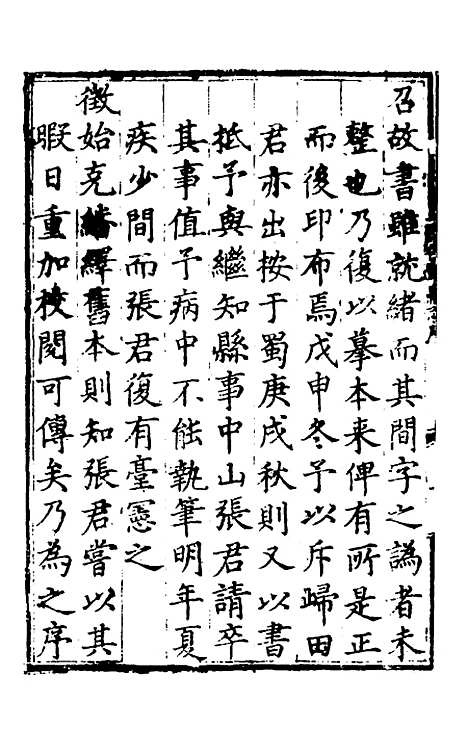 召故書雖就緒而其間字之譌者未
整也乃復以摹本来俾有所是正
而後印布焉戊申冬予以斥歸田
君亦出按于蜀庚戌秋則又以書
抵予與繼知縣事中山張君請卒
其事值予病中不能執筆明年夏
疾少間而張君復有臺憲之
徵始克繙繹舊本則知張君嘗以其
暇日重加校閱可傳矣乃為之序